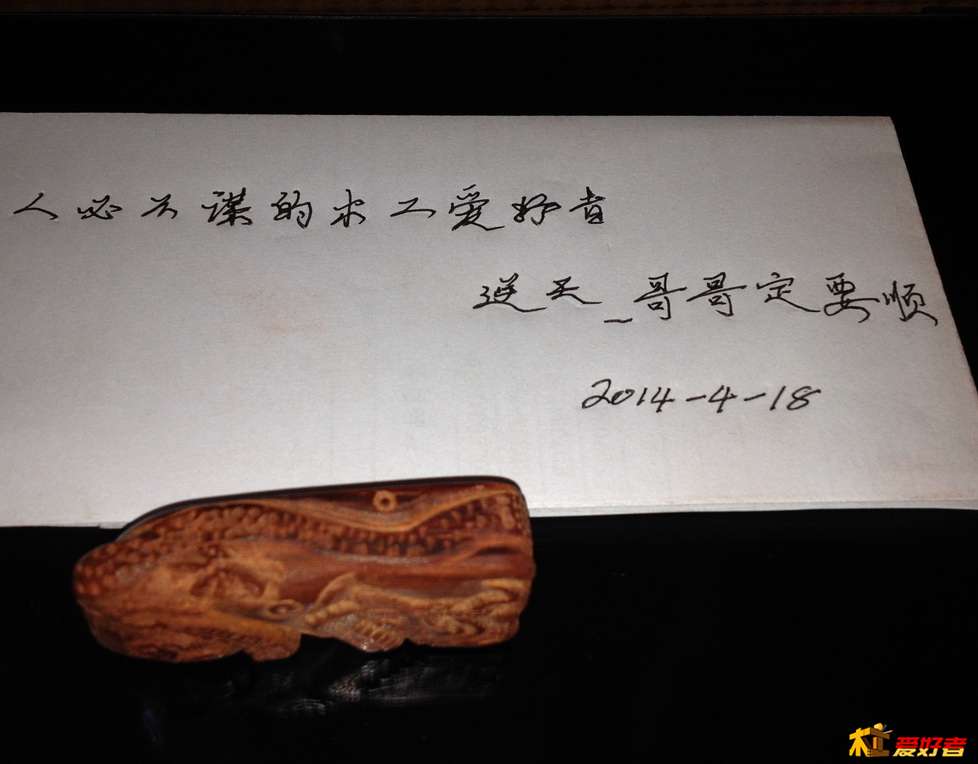 人必为谋的木工爱好者
逆天_哥哥定要顺
2014-4-18
木工爱好者